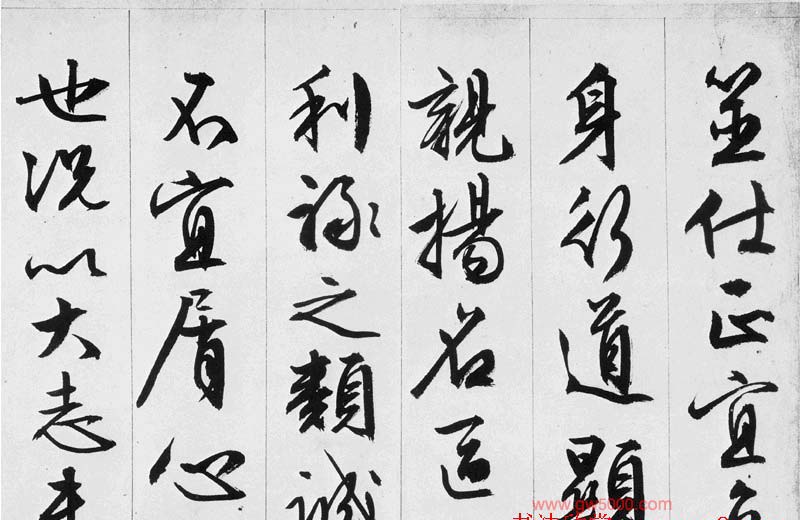 筮仕正宜
身行道顯
親揚名區
利祿之類誠
不宜屑心
也況以大志未
www.gw5000.com